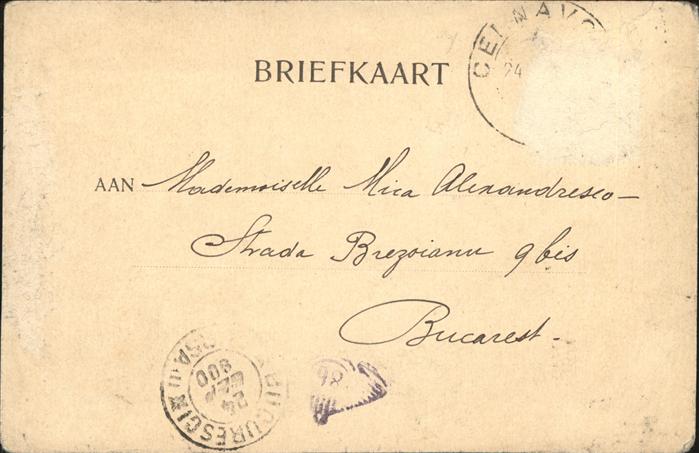 BRIEFKAART
CERNAVO
24
AAN Mademoiselle Mica Alexandresco
Strada Brezoianu 9 bis
Bucarest.
BUCURESCI
24 SEP
900
98